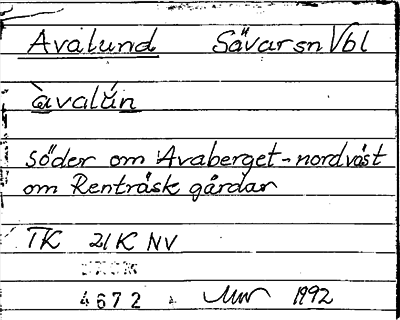 Avalund Sävar sn Vbl
àvalún
söder om Avaberget - nordväst
om Renträsk gårdar
TK 21K NV
4672 1992